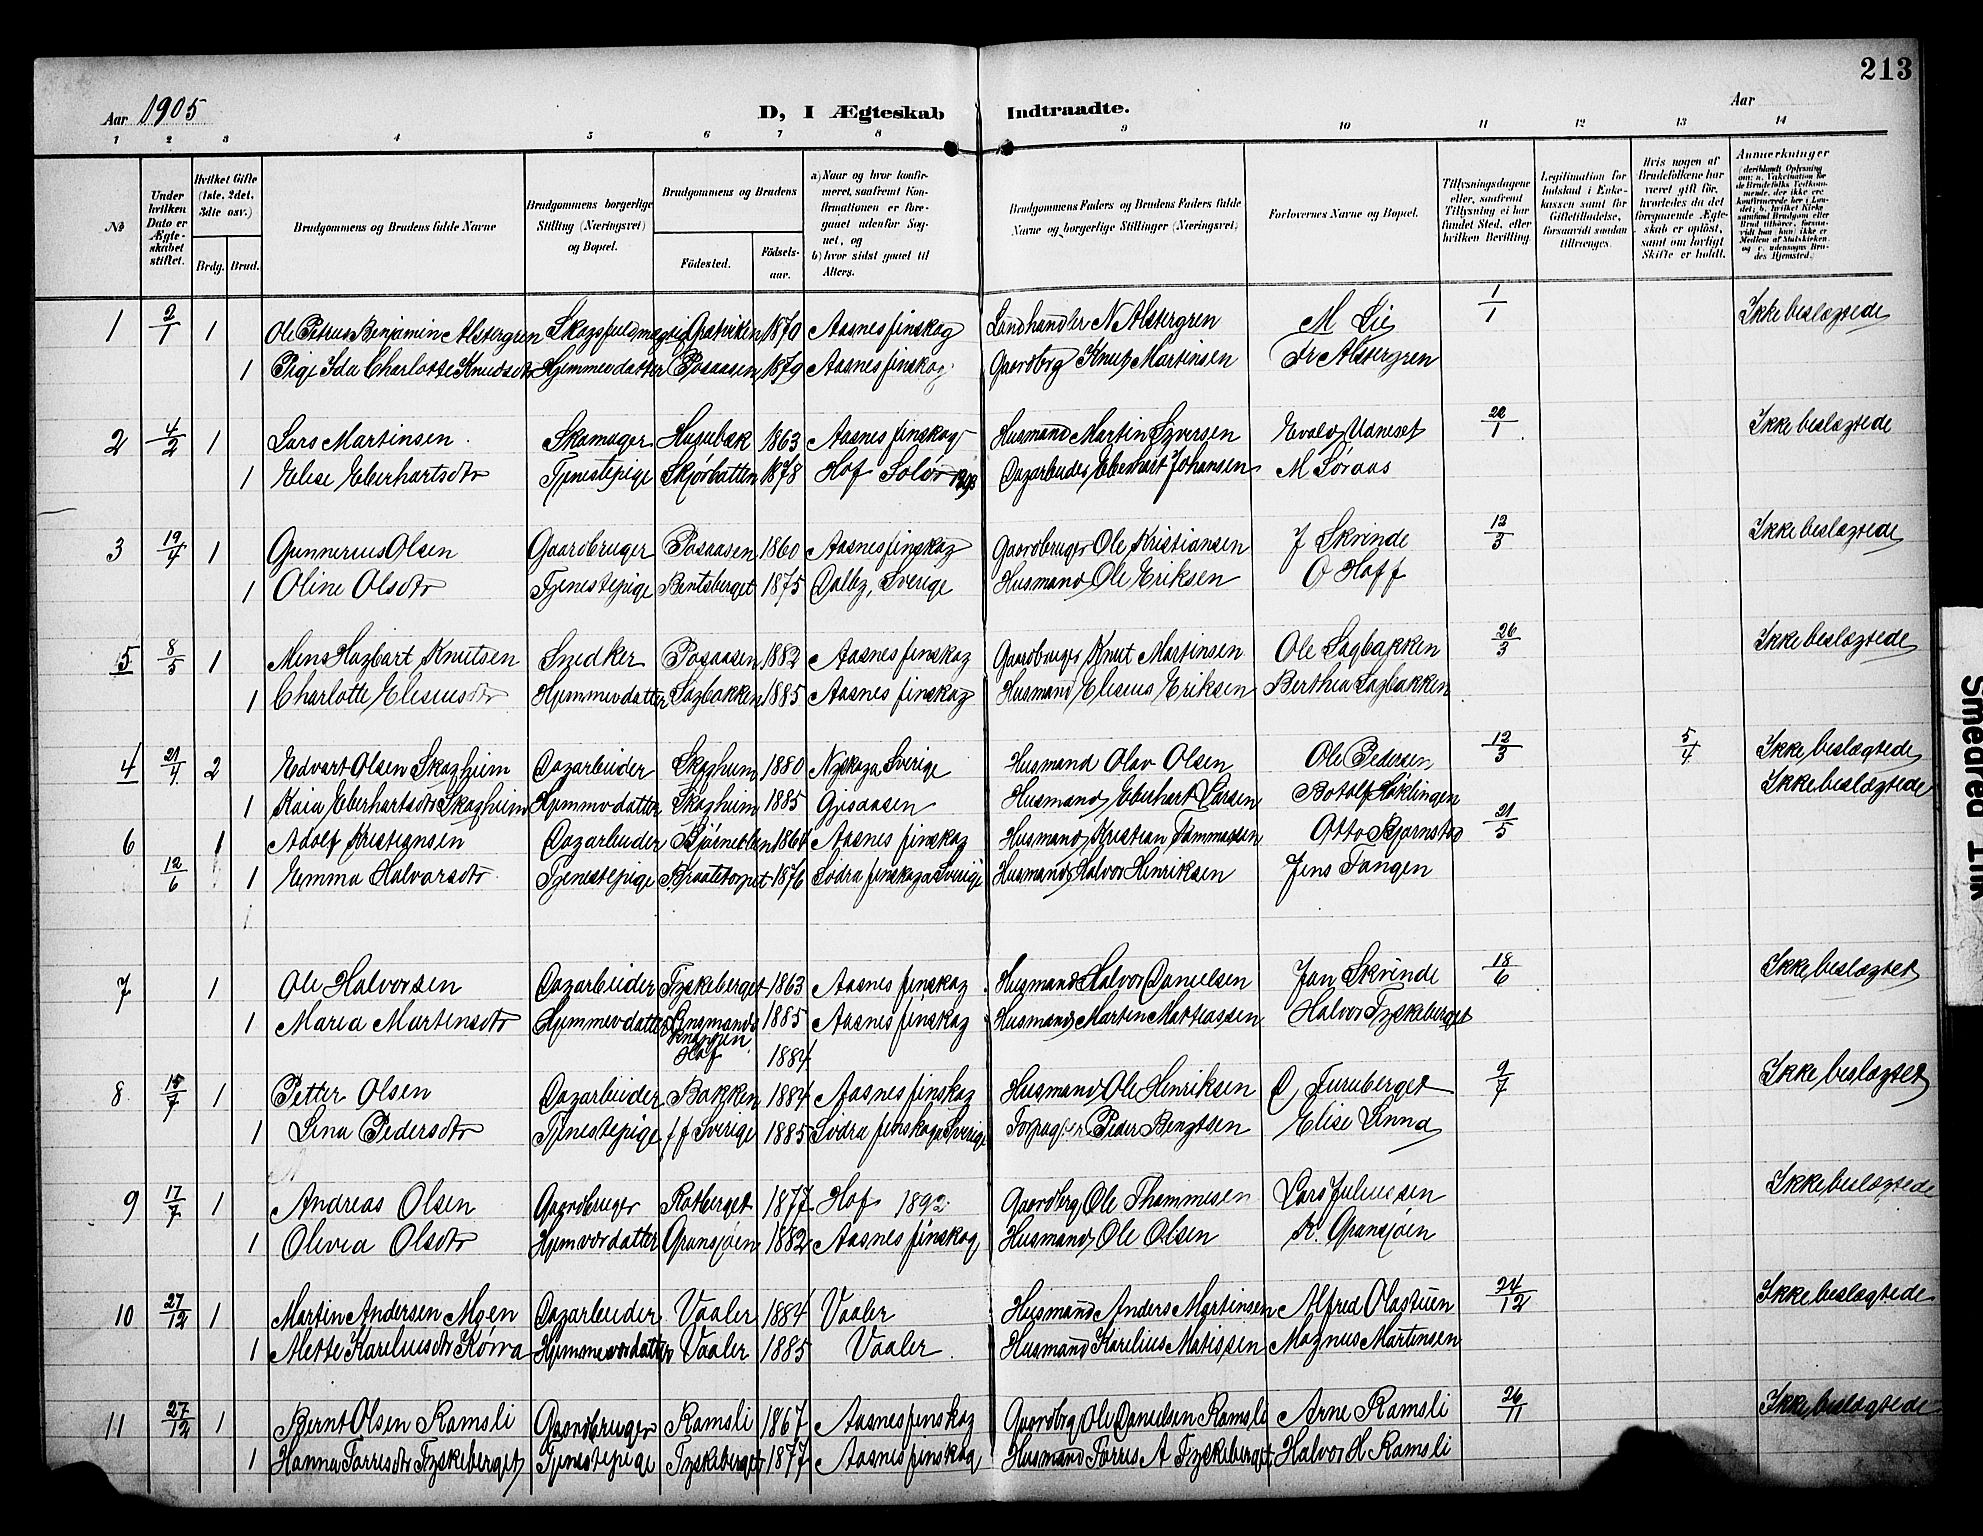 213
Aar 1905 D, I Ægteskab Indtraadte. Aar
1 2 3 4 5 6 7 8 9 10 11 12 13 14
№
Under hvilken Dato er Ægteskabet stiftet.
Hvilket Gifte (1ste, 2det, 3die osv.)
Brdg. Brud.
Brudgommens og Brudens fulde Navne
Brudgommens borgerlige Stilling (Næringsvei) og Bopæl.
Brudgommens og Brudens
Födested. Födselsaar.
a) Naar og hvor konfirmeret, saafremt Konfirmationen er foregaaet udenfor Sognet, og
b) hvor sidst gaaet til Alters.
Brudgommens Faders og Brudens Faders fulde Navne og borgerlige Stillinger (Næringsvei)
Forlovernes Navne og Bopæl.
Tillysningsdagene eller, saafremt Tillysning ei har fundet Sted, efter hvilken Bevilling.
Legitimation for Indskud i Enkekassen samt for Giftetilladelse, forsaavidt saadan tiltrænges.
Hvis nogen af Brudefolkene har været gift før, hvorledes da det foregaaende Ægteskab er opløst, samt om lovligt Skifte er holdt.
Anmerkninger
1 2/1 1 Ole Petrus Benjamin Alstergren Skogsfuldmægtig Gratviken 1870 Aasnes finskog Landhandler N Alstergren M Lie 1/1 Ikke beslægtede
1 Pige Ida Charlotte Knudsdtr Hjemmevdatter Posaasen 1879 Aasnes finskog Gaardbrg Knut Martinsen Fr Alstergren
2 4/2 1 Lars Martinsen Skomager 1863 Aasnes finskog Husmand Martin Syversen Evald Vaneset 22/1 Ikke beslægtede
1 Elise Eberhartsdtr Tjenestepige Skjørbatten 1878 Hof Solør 1893 Dagarbeider Eberhart Johansen M Søraas
3 19/4 1 Gunnerius Olsen Gaardbruger Posaasen 1860 Aasnes finskog Gaardbruger Ole Kristiansen J Skrinde 12/3 Ikke beslægtede
1 Oline Olsdtr Tjenestepige Bentsberget 1875 Dalby, Sverige Husmand Ole Eriksen O Hoff
5 8/5 1 Mens Hagbart Knutsen Snedker Posaasen 1882 Aasnes finskog Gaardbruger Knut Martinsen Ole Sagbakken 26/3 Ikke beslægtede
1 Charlotte Elesiusdtr Hjemmevdatter Sagbakken 1885 Aasnes finskog Husmand Elesius Eriksen Berthea Sagbakken
4 21/4 2 Edvart Olsen Skogheim Dagarbeider Skogheim 1880 Nyskoga Sverige Husmand Olav Olsen Ole Pedersen 12/3 5/4 Ikke beslægtede
1 Kaia Eberhartsdtr Skogheim Hjemmevdatter Skogheim 1885 Gjesaasen Husmand Eberhart Larsen Botolf Løklingen Ikke beslægtede
6 1 Adolf Kristiansen Dagarbeider Aasnes finskog Husmand Kristian Tammassen Otto Bjørnstad 21/5
12/6 1 Emma Halvorsdtr Tjenestepige Braatetorpet 1876 Södra finskoga Sverige Husmand Halvor Henriksen Jens Tangen
7 1 Ole Halvorsen Dagarbeider Tyskeberget 1863 Aasnes finskog Husmand Halvor Danielsen Jan Skrinde 18/6 Ikke beslægtet
1 Maria Martensdtr Hjemmevdatter 1885 Aasnes finskog Husmand Martin Mattiassen Halvor Tyskeberget
Hof 1884
8 15/7 1 Petter Olsen Dagarbeider Bakken 1884 Aasnes finskog Husmand Ole Henriksen O Furuberget 9/7 Ikke beslægtet
1 Lina Pedersdtr Tjenestepige ff Sverige 1885 Södra finskoga Sverige Forpagter Peder Bengtsen Elise Linna
9 17/7 1 Andreas Olsen Gaardbruger Rotberget 1877 Hof 1892 Gaardbrg Ole Thammesen Lars Juliussen Ikke beslægtede
1 Olivia Olsdtr Hjemvdatter Gransjøen 1882 Aasnes finskog Husmand Ole Olsen K. Gransjøen
10 27/12 1 Martin Andersen Moen Dagarbeider Vaaler 1884 Vaaler Husmand Anders Martinsen Alfred Olastuen 24/12 Ikke beslægtede
1 Mette Kareliusdtr Kørra Hjemmevdatter Vaaler 1885 Vaaler Husmand Karelius Matissen Magnus Martinsen
11 27/12 1 Bernt Olsen Ramsli Gaardbruger Ramsli 1867 Aasnes finskog Gaardbrg Ole Danielsen Ramsli Arne Ramsli 26/11 Ikke beslægtede
1 Hanna Torresdtr Tyskeberget Tjenestepige Tyskeberget 1877 Aasnes finskog Husmand Torres A Tyskeberget Halvor H Ramsli
Smedred Ink